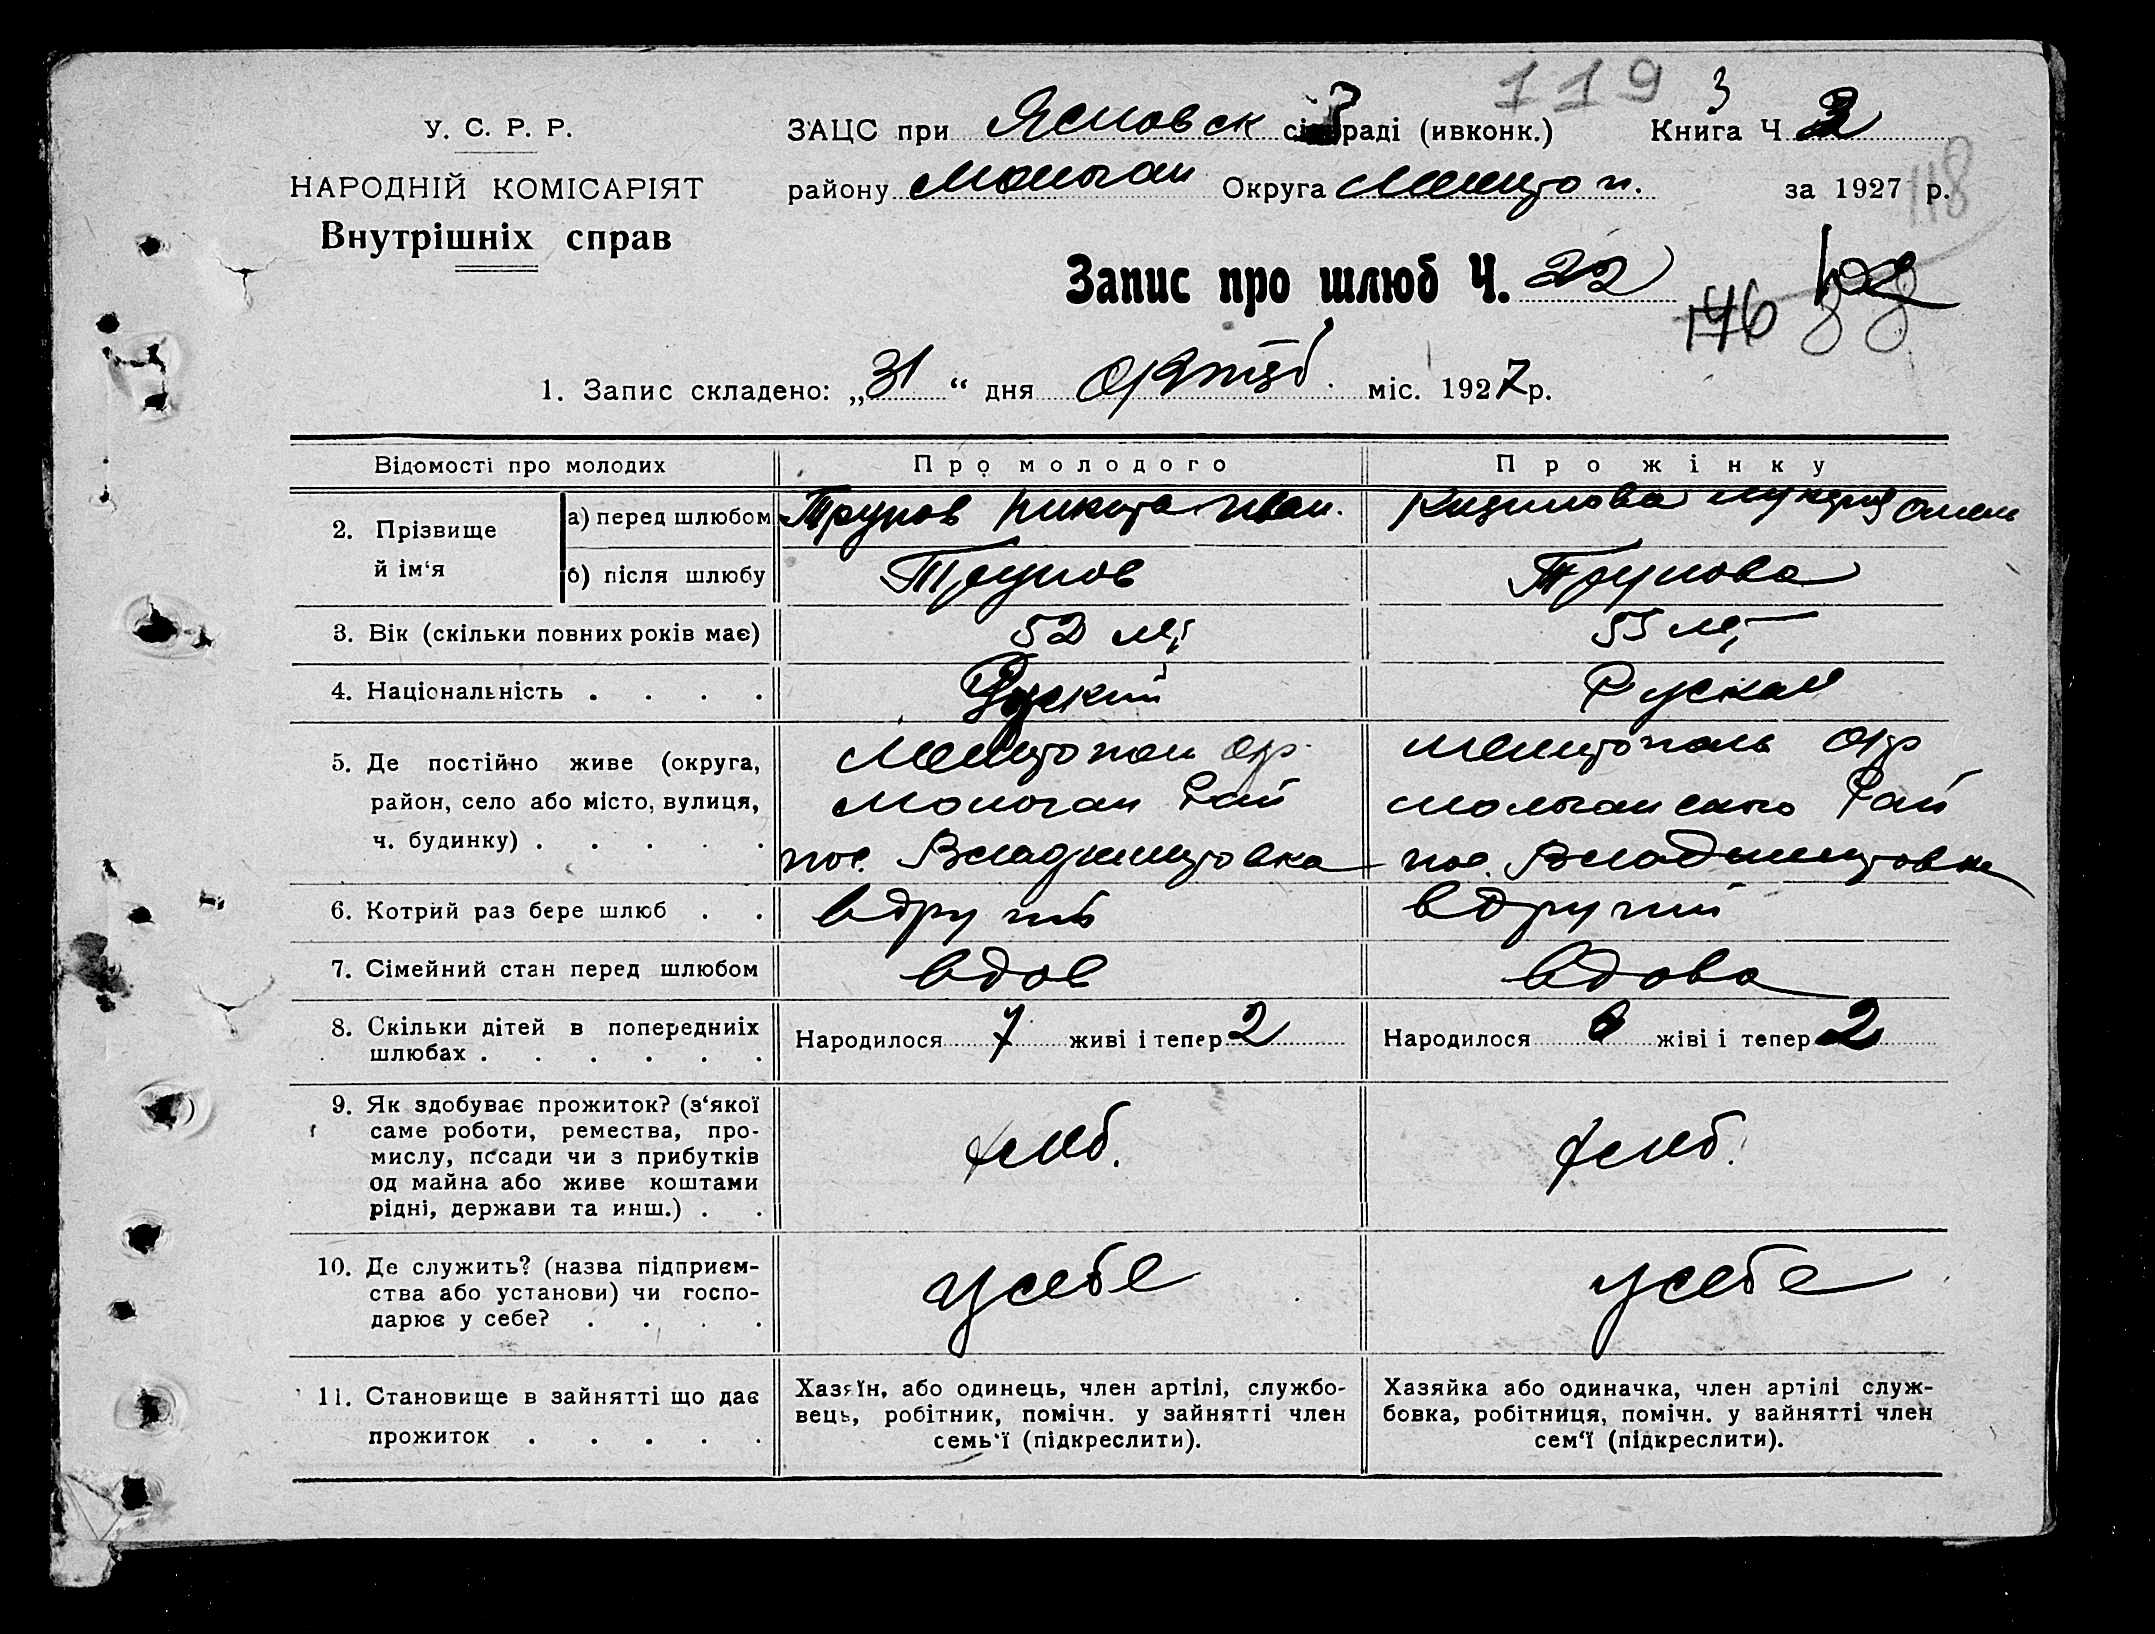 119 3
У. С. Р. Р.
ЗАЦС при Ясновск сільраді (ивконк.) Книга Ч 3
НАРОДНІЙ КОМІСАРІЯТ
району Молочан Округа Мелитоп. за 1927 р.
118
Внутрішніх справ
Запис про шлюб Ч. 22
146 88
1. Запис складено: „31“ дня октяб. міс. 1927 р.
Відомості про молодих Про молодого Про жінку
2. Прізвище й ім‘я
а) перед шлюбом Трунов Никита Иван.
б) після шлюбу Трунов Трунова
3. Вік (скільки повних років має) 52 лет 55 лет
4. Національність . . . . Руский Руская
5. Де постійно живе (округа,
район, село або місто, вулиця,
ч. будинку) . . . . .
Мелитопол окр.
Молочан Рай
пос. Владимировка
Мелитополь окр
Молочанского Рай
пос. Владимировка
6. Котрий раз бере шлюб . . вдругий вдругий
7. Сімейний стан перед шлюбом вдов вдова
8. Скільки дітей в попередниіх
шлюбах . . . . . .
Народилося 7 живі і тепер 2
Народилося 6 жіві і тепер 2
9. Як здобуває прожиток? (з‘якої
саме роботи, ремества, про-
мислу, посади чи з прибутків
од майна або живе коштами
рідні, держави та инш.) . .
хлеб. хлеб.
10. Де служить? (назва підприєм-
ства або установи) чи госпо-
дарює у себе? . . . .
усебе усебе
11. Становище в зайнятті що дає
прожиток . . . . .
Хазяїн, або одинець, член артілі, службо-
вець, робітник, помічн. у зайнятті член
семь‘ї (підкреслити).
Хазяйка або одиначка, член артілі служ-
бовка, робітниця, помічн. у зайнятті член
сем‘ї (підкреслити).